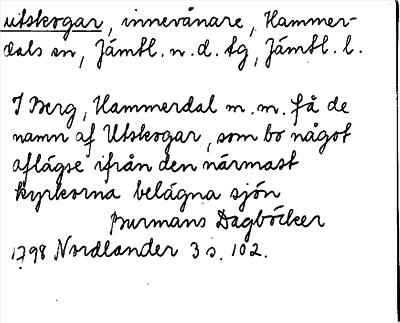 utskogar, innevånare, Hammer-
dals sn, Jämtl. n. d. tg, Jämtl. l.
I Berg, Hammerdal m.m. få de
namn af Utskogar, som bo något
aflägse ifrån den närmast
kyrkorna belägna sjön
Burmans Dagböcker
1798 Nordlander 3 s. 102.